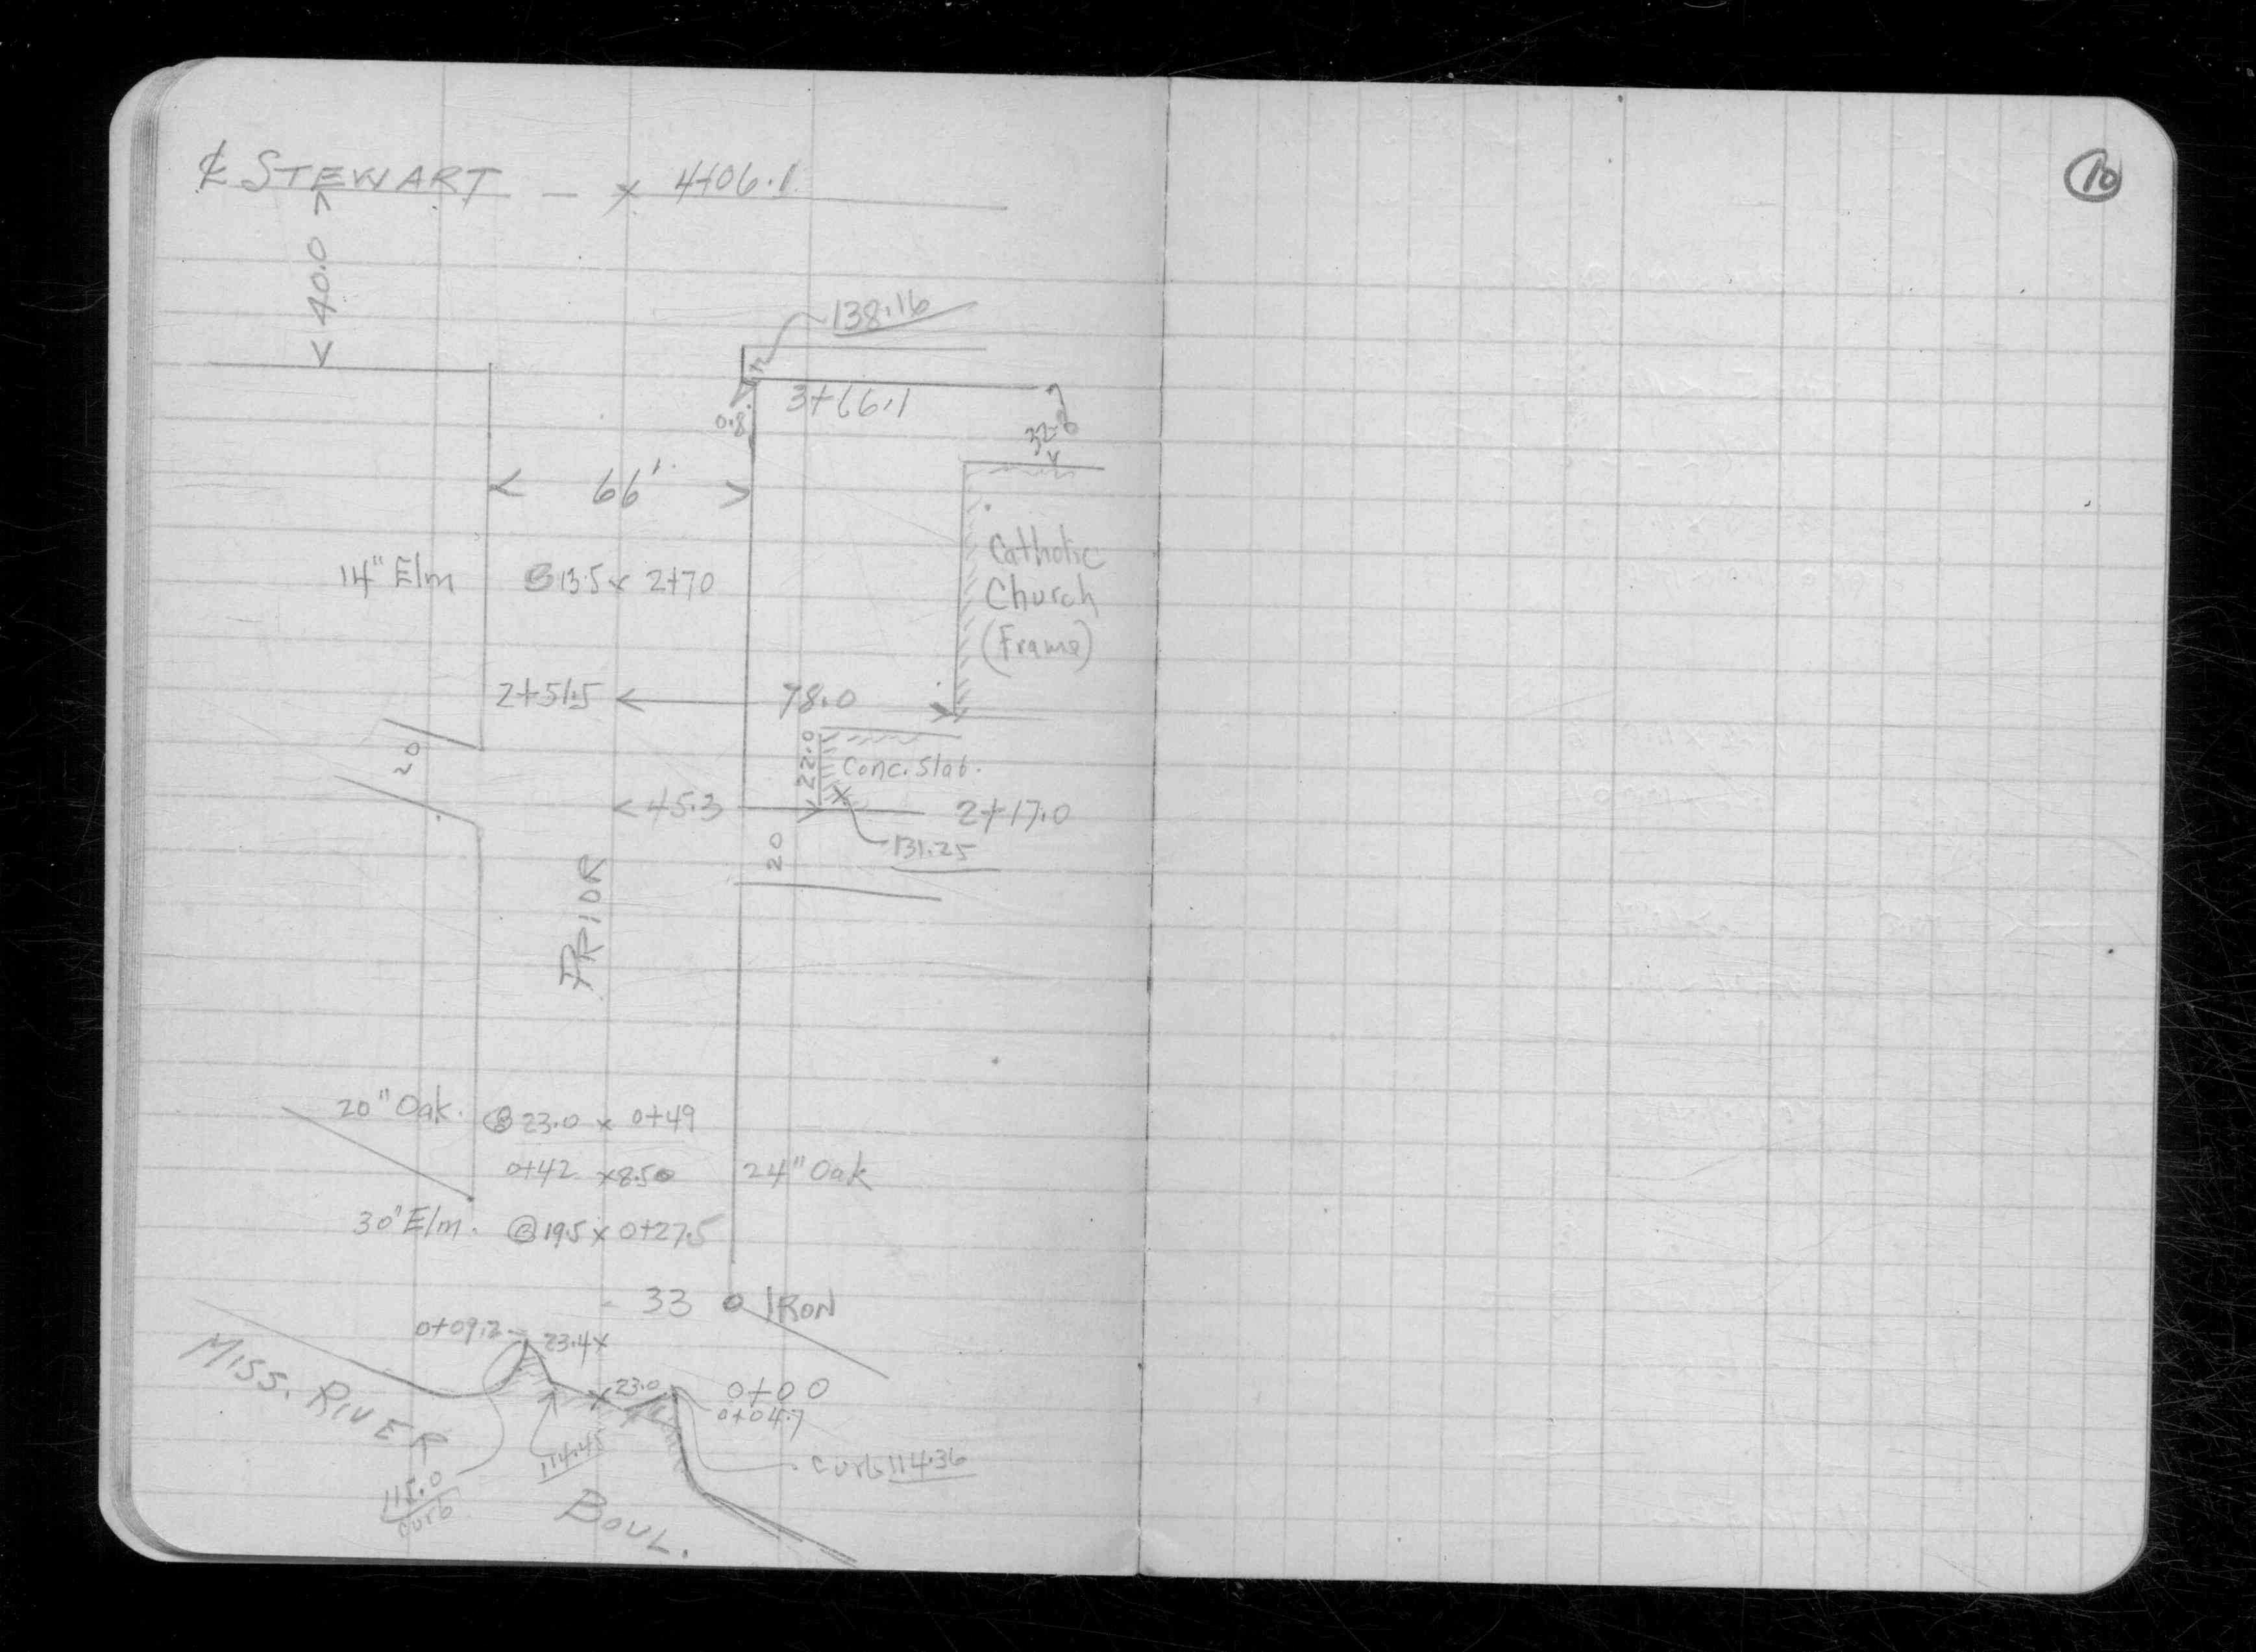 ℄ STEWART — x 4+06.1
10
40.0
138.16
3+66.1
0.8
32.8
66'
Catholic
Church
(Frame)
14" Elm @ 13.5 x 2+70
2+51.5 78.0
20
22.0
Conc. Slab.
45.3 2+17.0
131.25
20
PRIOR
20" Oak. @ 23.0 x 0+49
0+42 x 8.50 24" Oak
30" Elm. @ 19.5 x 0+27.5
33 IRON
0+09.2 23.4 x
x 23.0 0+00
0+04.7
MISS. RIVER BOUL.
114.45
curb 114.36
115.0
curb